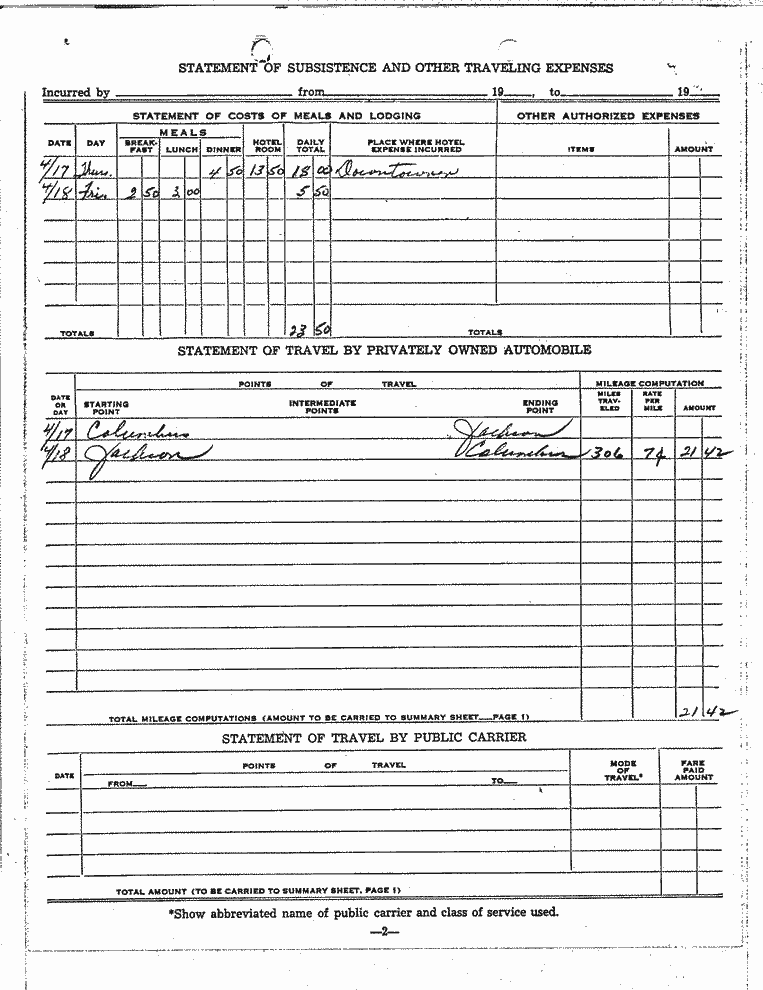 STATEMENT OF SUBSISTENCE AND OTHER TRAVELING EXPENSES
Incurred by from 19 , to 19
STATEMENT OF COSTS OF MEALS AND LODGING OTHER AUTHORIZED EXPENSES
MEALS
DATE DAY BREAK-FAST LUNCH DINNER HOTEL ROOM DAILY TOTAL PLACE WHERE HOTEL EXPENSE INCURRED ITEMS AMOUNT
4/17 Thurs. 4 50 13 50 18 00 Downtowner
4/18 Fri. 2 50 3 00 5 50
TOTALS 23 50 TOTALS
STATEMENT OF TRAVEL BY PRIVATELY OWNED AUTOMOBILE
POINTS OF TRAVEL MILEAGE COMPUTATION
DATE OR DAY STARTING POINT INTERMEDIATE POINTS ENDING POINT MILES TRAV-ELED RATE PER MILE AMOUNT
4/17 Columbus Jackson
4/18 Jackson Columbus 306 7¢ 21 42
TOTAL MILEAGE COMPUTATIONS (AMOUNT TO BE CARRIED TO SUMMARY SHEET—PAGE 1) 21 42
STATEMENT OF TRAVEL BY PUBLIC CARRIER
POINTS OF TRAVEL
DATE FROM— TO— MODE OF TRAVEL* FARE PAID AMOUNT
TOTAL AMOUNT (TO BE CARRIED TO SUMMARY SHEET, PAGE 1)
*Show abbreviated name of public carrier and class of service used.
—2—